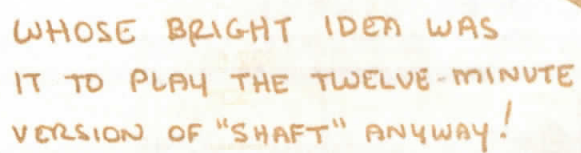 WHOSE BRIGHT IDEA WAS
IT TO PLAY THE TWELVE-MINUTE
VERSION OF "SHAFT" ANYWAY!